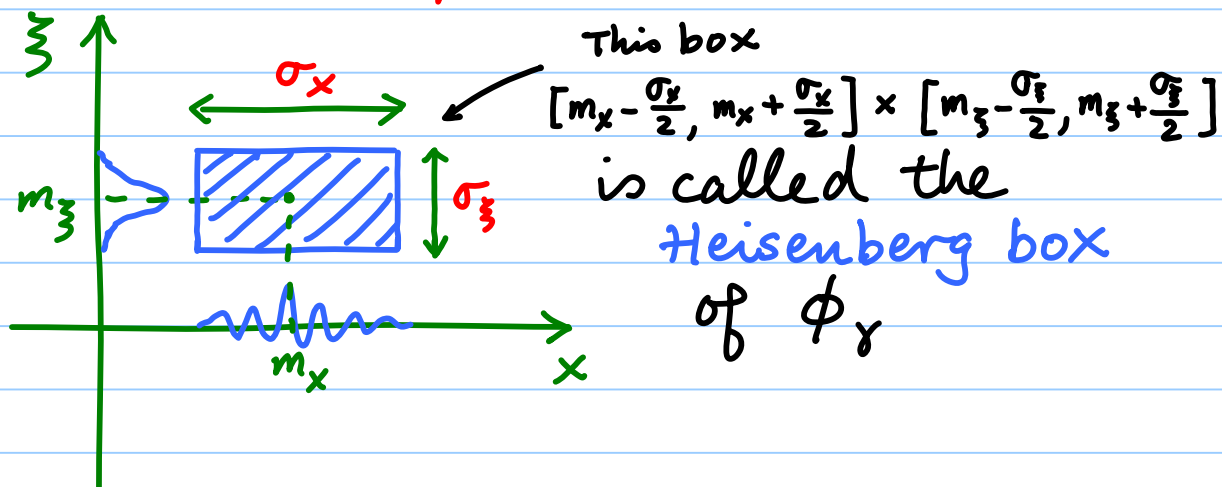 ξ
This box
σₓ
[mₓ - σₓ/2, mₓ + σₓ/2] × [m_ξ - σ_ξ/2, m_ξ + σ_ξ/2]
is called the
m_ξ
σ_ξ
Heisenberg box
of ϕ_γ
mₓ
x